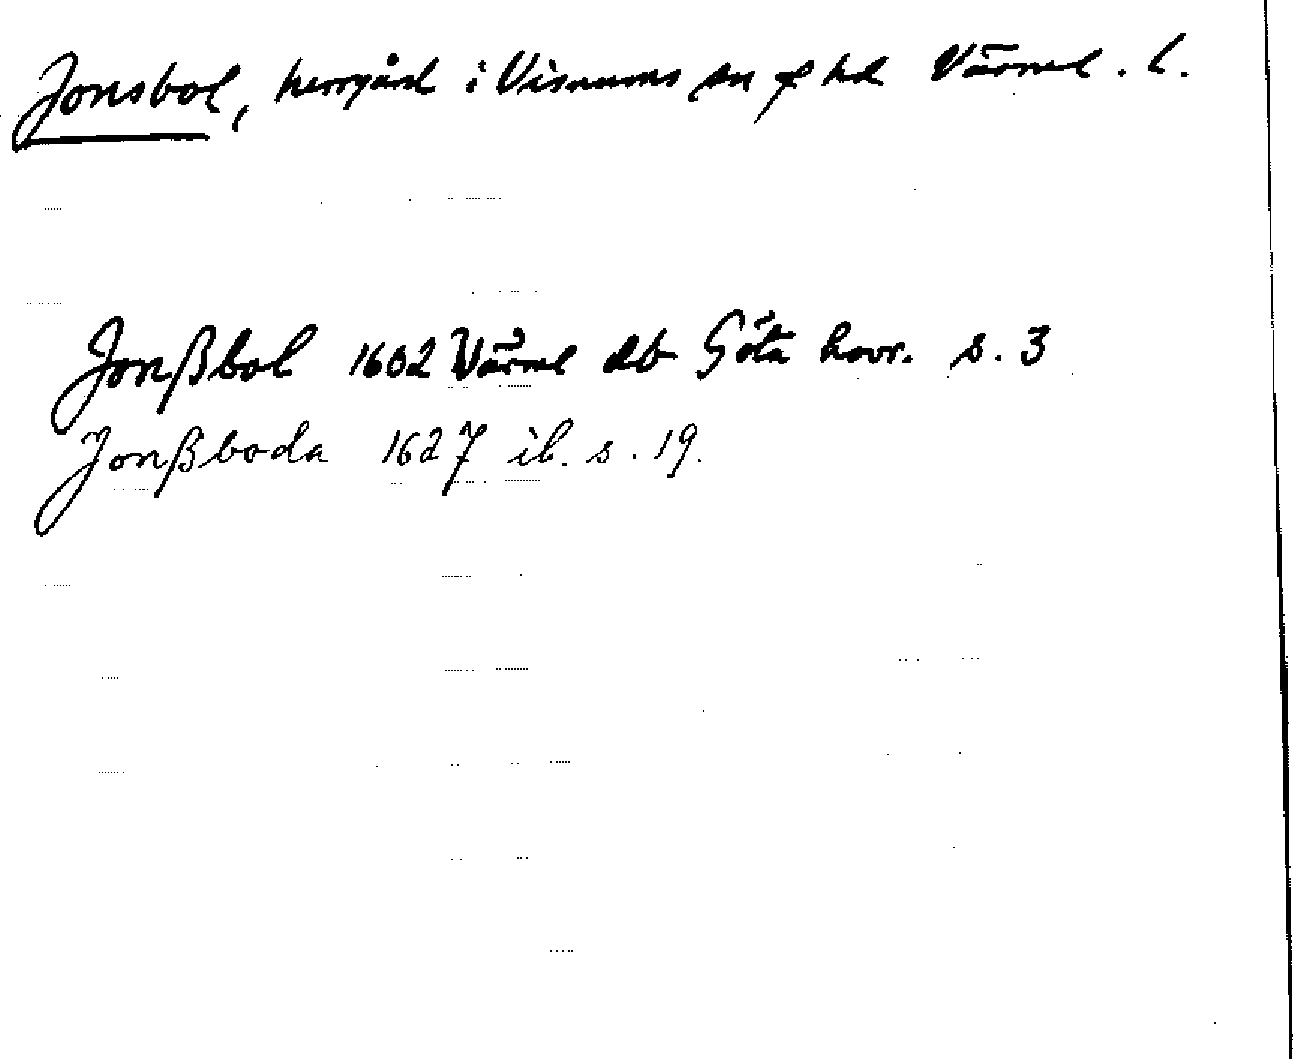 Jonsbol, herrgård i Visnums sn o hd Värml. l.
Jonßbol 1602 Värml db Göta hovr. s. 3
Jonßboda 1627 ib. s. 19.